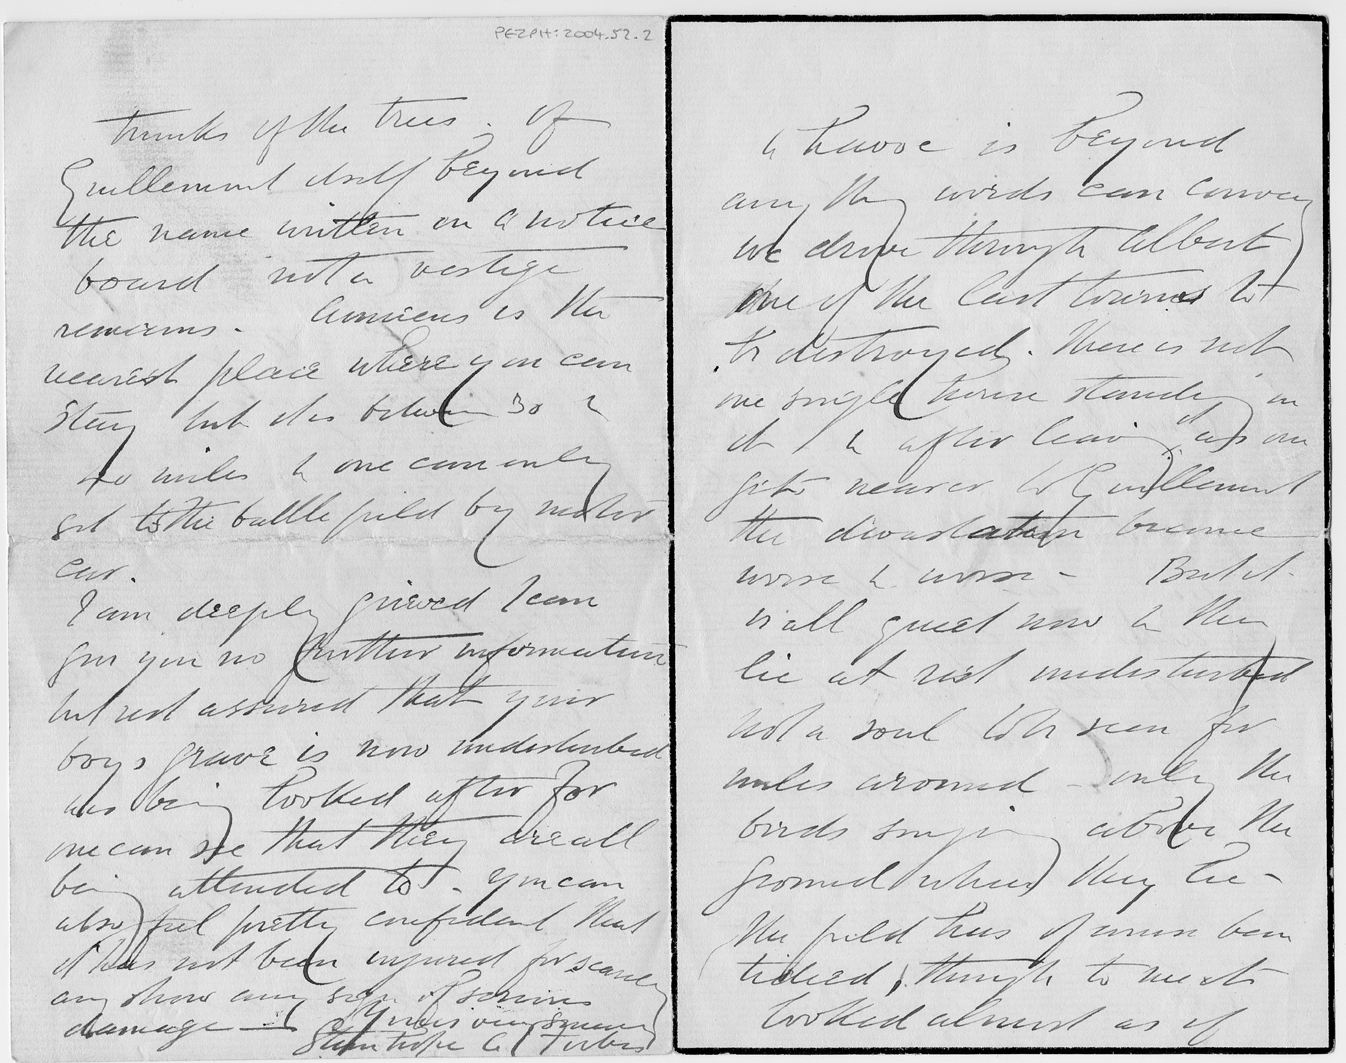 PEZPH:2004.52.2
trunks of the trees. Of
Guillemont itself beyond
the name written on a notice
board not a vestige
remains. Amiens is the
nearest place where you can
stay but it is between 30 &
40 miles & one can only
get to the battle field by motor
car.
I am deeply grieved I can
give you no further information
but rest assured that your
boys grave is now undisturbed
& is being looked after for
one can see that they are all
being attended to. You can
also feel pretty confident that
it has not been injured for scarcely
any show any sign of serious
damage
Yours very sincerely
Stanhope A Forbes
& havoc is beyond
any thing words can convey
we drove through Albert
one of the last towns to
be destroyed. There is not
one single house standing in
it & after leaving as one
gets nearer to Guillemont
the devastation became
worse & worse - But it
is all quiet now & they
lie at rest undisturbed
not a soul to be seen for
miles around - only the
birds singing above the
ground where they lie -
The field has of course been
tidied, though to me it
looked almost as if